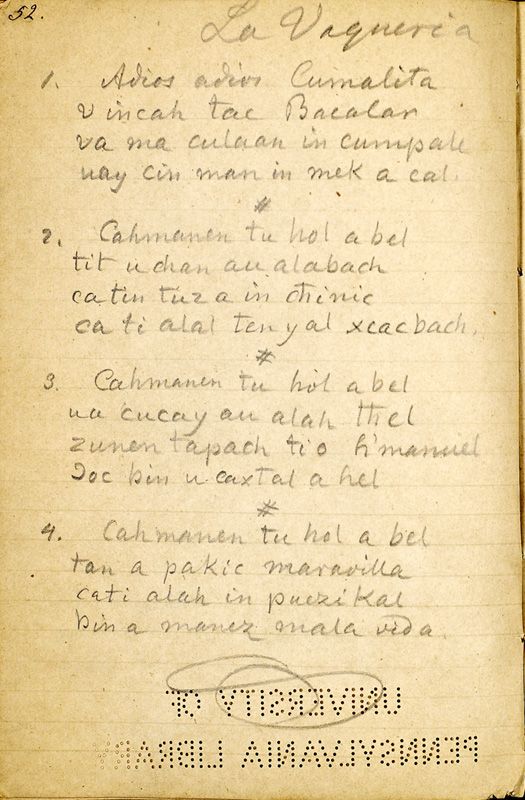 52.
La Vaqueria
1. Adios adios Cumalita
vincah tac Bacalar
va ma culaan in cumpale
uay cin man in mek a cal.
#
2. Cahmanen tu hol a bel
tit u chan au alabach
ca tin tuza in chinic
ca ti alal ten yal xcacbach.
#
3. Cahmanen tu hol a bel
ua cucay au alah thel
zunen tapach ti o h'manuel
Doc bin u caxtal a hel
#
4. Cahmanen tu hol a bel
tan a pakic maravilla
cati alah in puczikal
bin a manez mala vida.
UNIVERSITY OF
PENNSYLVANIA LIBRARY